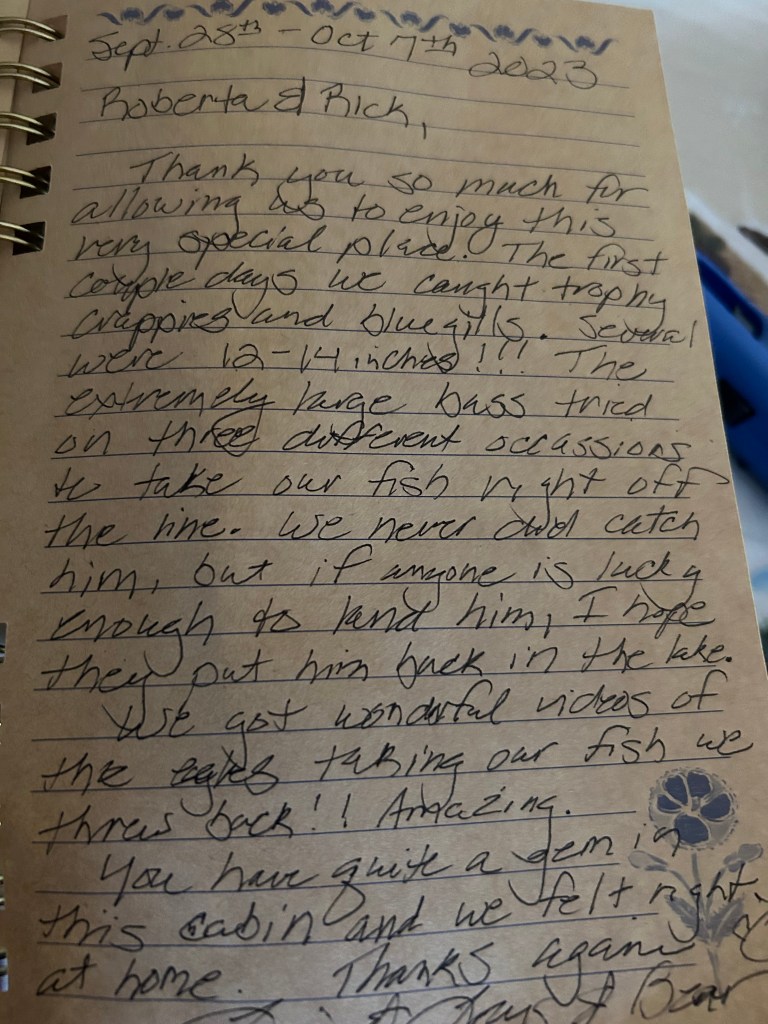 Sept. 28th - Oct 7th 2023
Roberta & Rick,
Thank you so much for
allowing us to enjoy this
very special place. The first
couple days we caught trophy
crappies and bluegills. Several
were 12-14 inches!!! The
extremely large bass tried
on three different occassions
to take our fish right off
the line. We never did catch
him, but if anyone is lucky
enough to land him, I hope
they put him back in the lake.
We got wonderful videos of
the egles taking our fish we
threw back!! Amazing.
You have quite a gem in
this cabin and we felt right
at home. Thanks again
& Bear